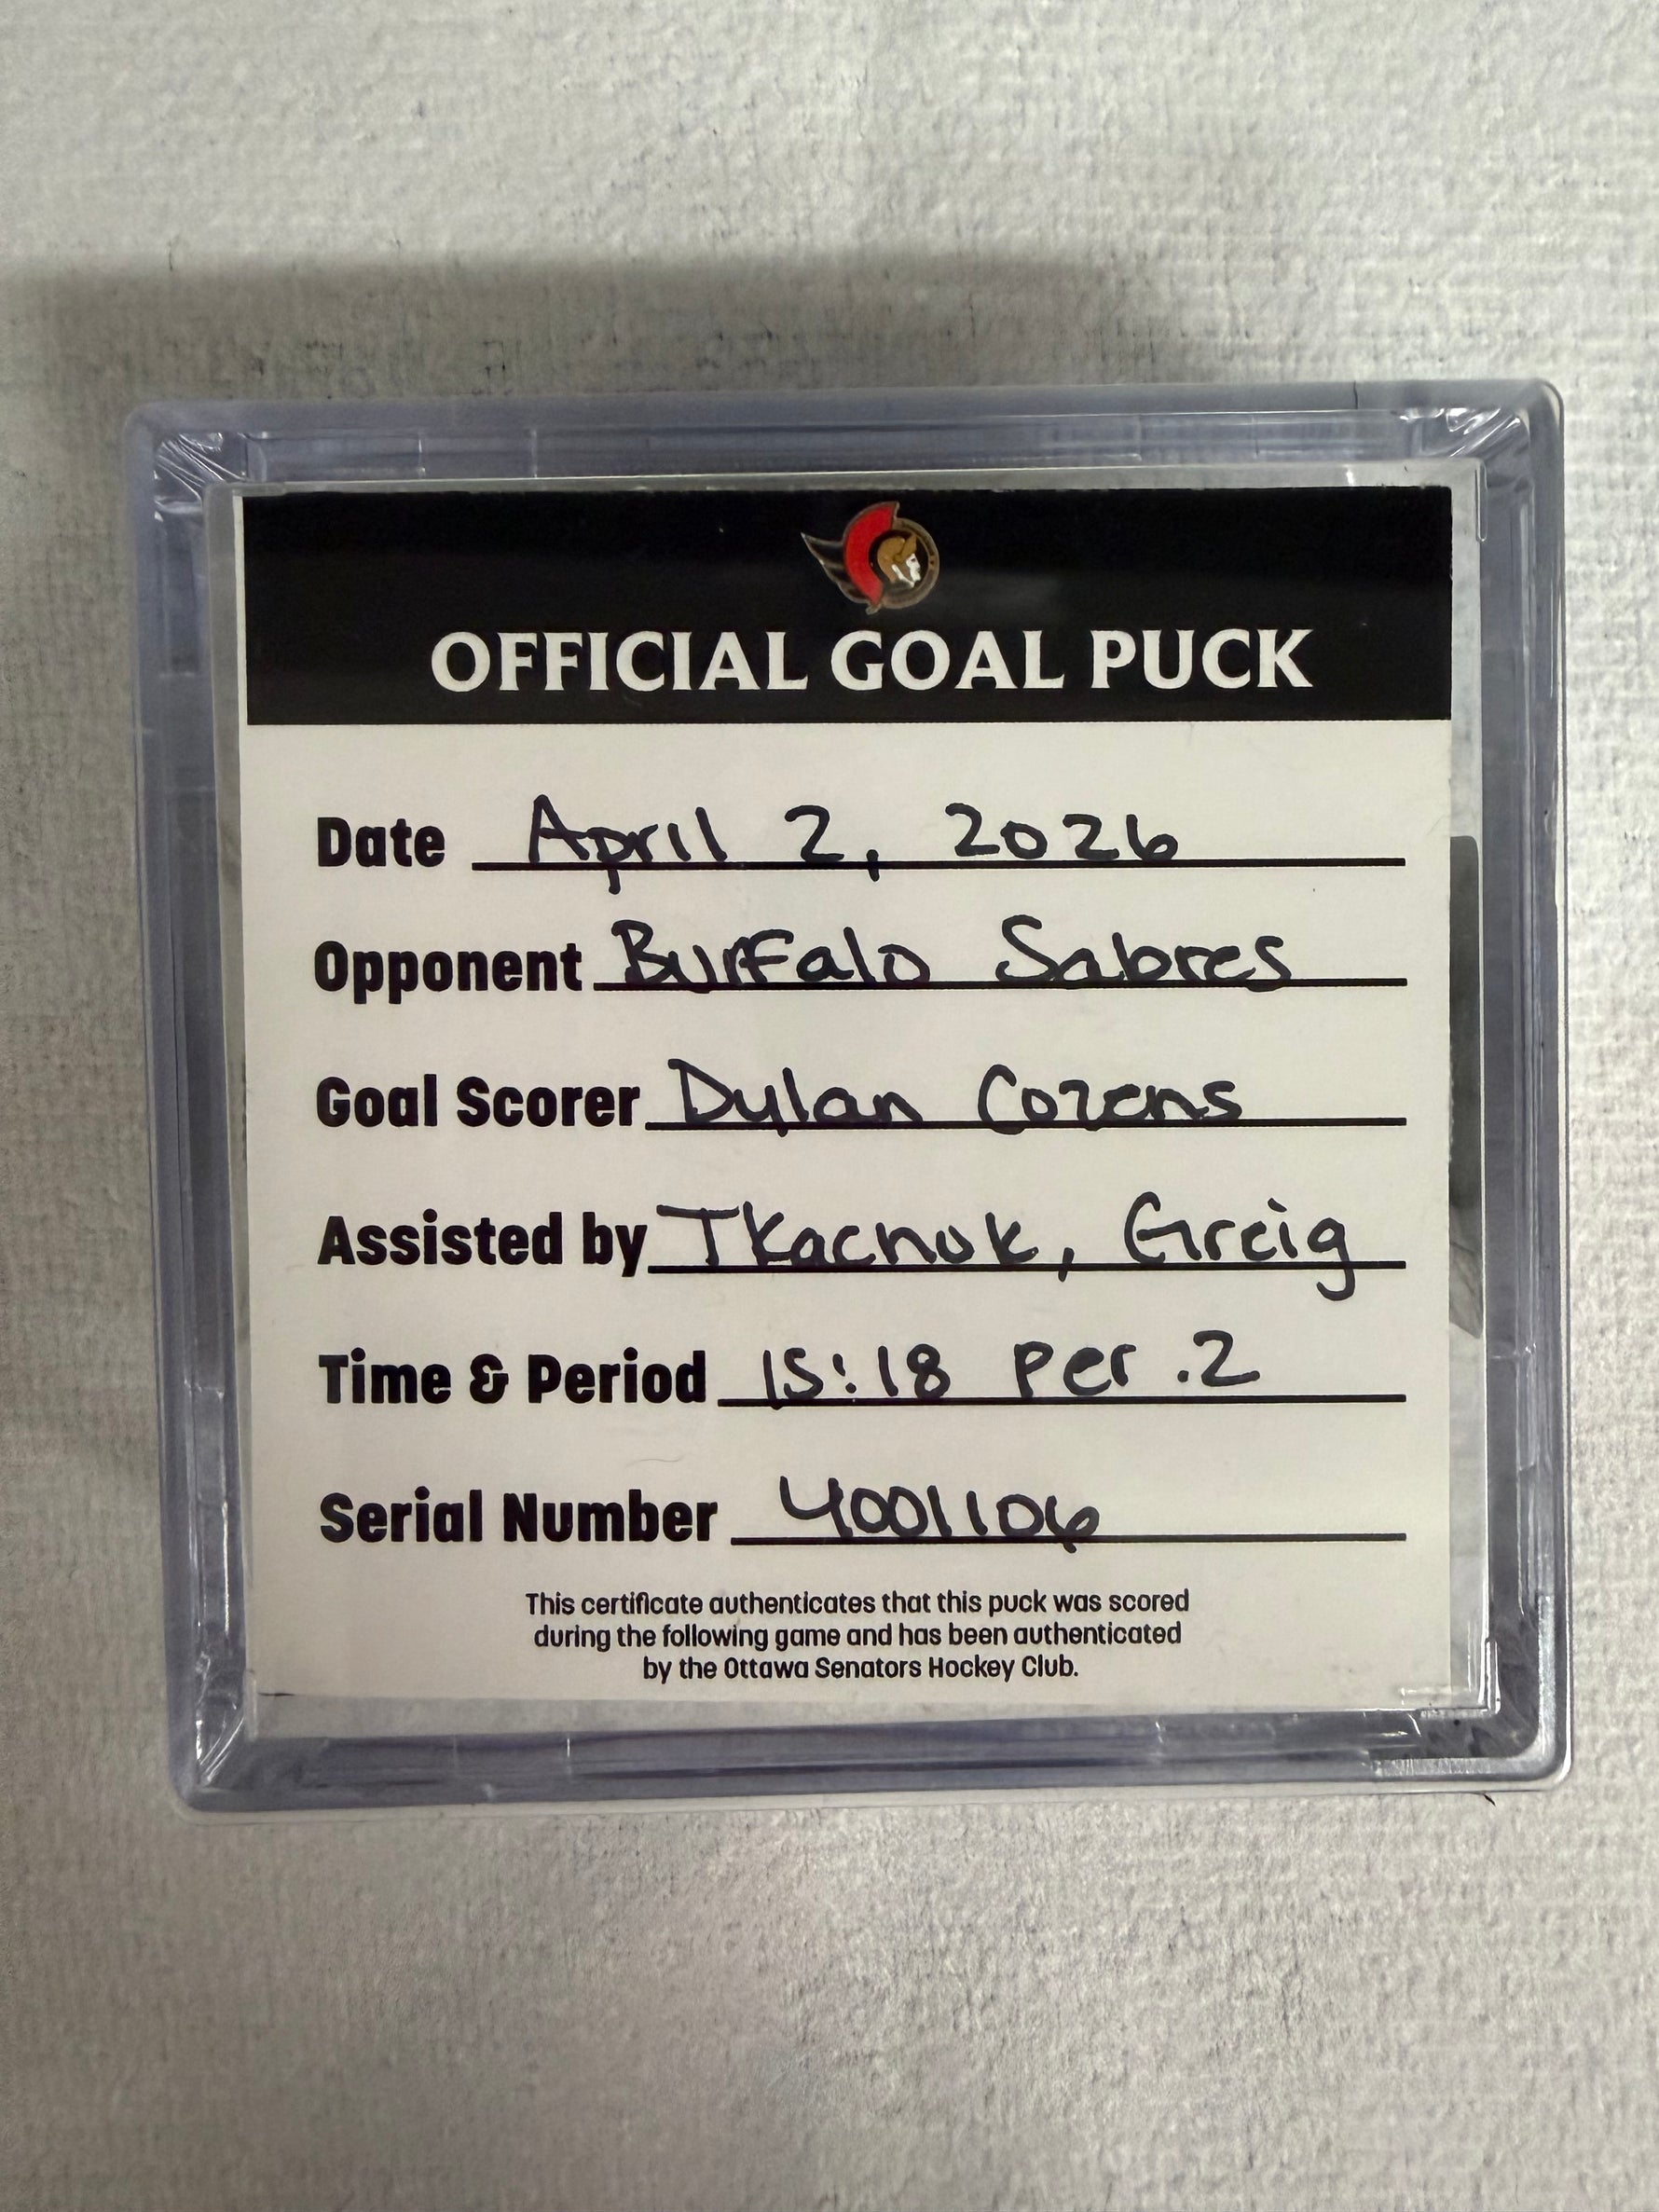 OFFICIAL GOAL PUCK
Date April 2, 2026
Opponent Buffalo Sabres
Goal Scorer Dylan Cozens
Assisted by Tkachuk, Greig
Time & Period 15:18 Per.2
Serial Number 4001106
This certificate authenticates that this puck was scored
during the following game and has been authenticated
by the Ottawa Senators Hockey Club.